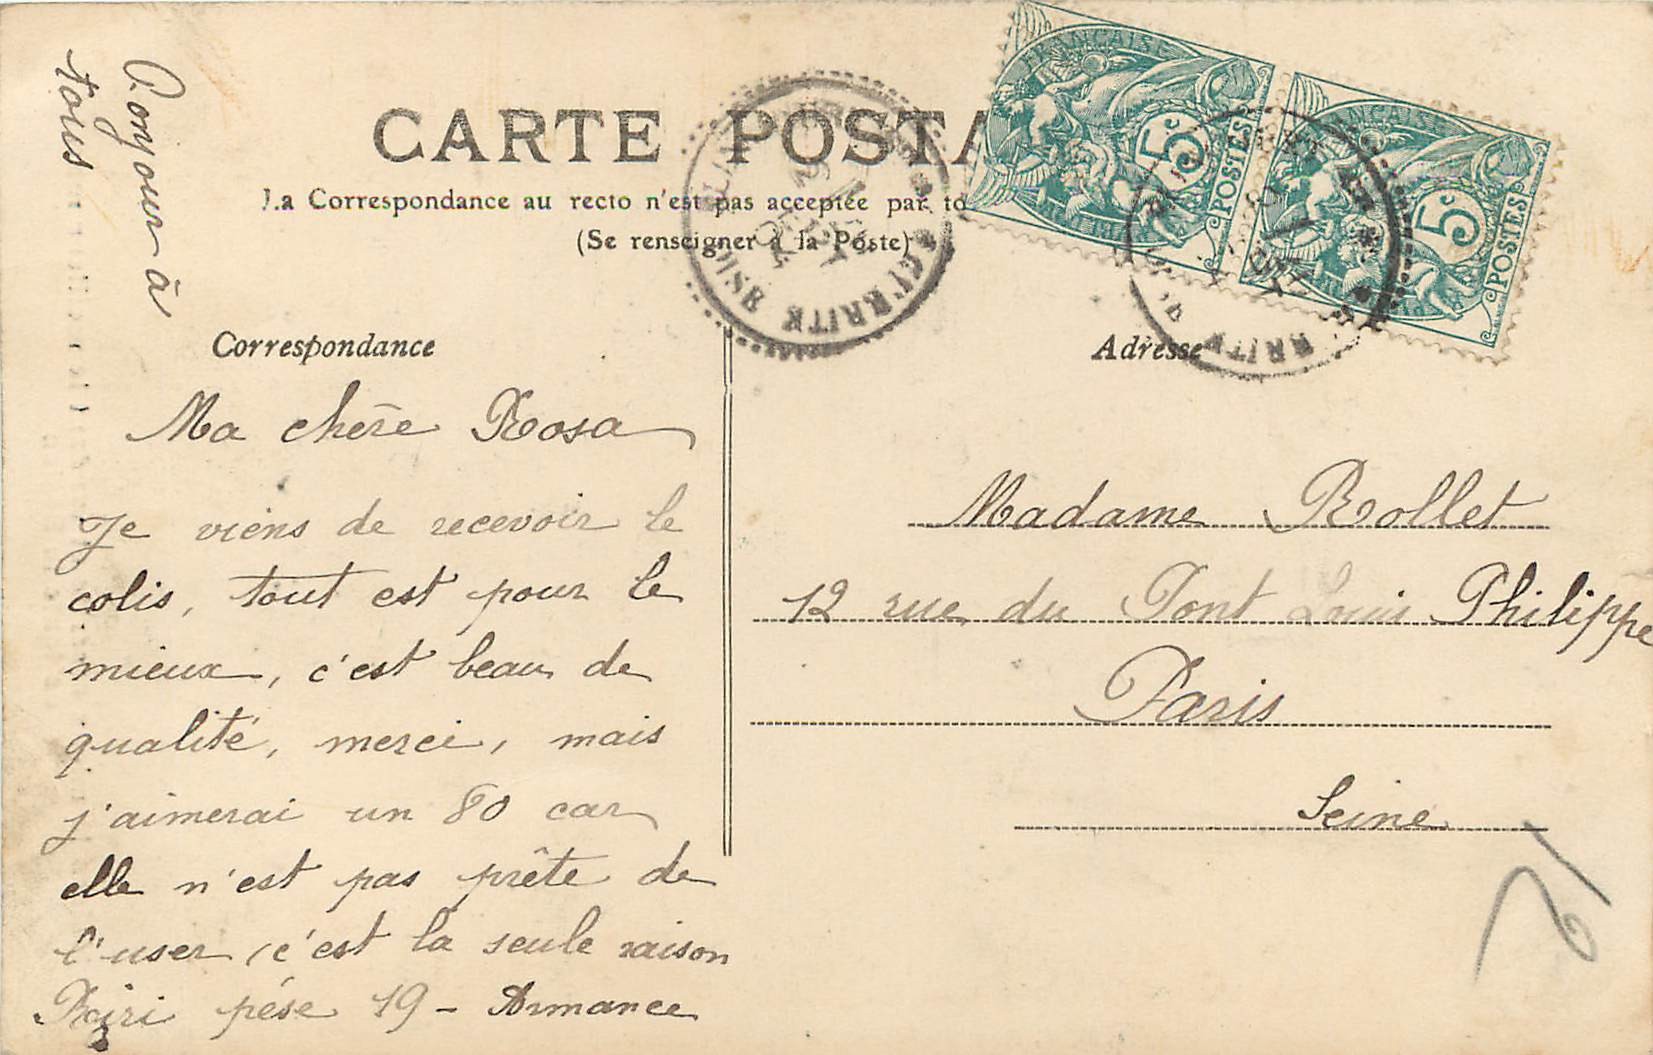 Bonjour à
tous
CARTE POSTA
La Correspondance au recto n'est pas acceptée par to
(Se renseigner à la Poste)
FRANÇAISE
5c
POSTES
FRANÇAISE
5c
POSTES
Correspondance
Ma chère Rosa
Je viens de recevoir le
colis, tout est pour le
mieux, c'est beau de
qualité, merci, mais
j'aimerai un 80 car
elle n'est pas prête de
l'user, c'est la seule raison
Riri pése 19 - Armance
Adresse
Madame Rollet
12 rue du Pont Louis Philippe
Paris
Seine